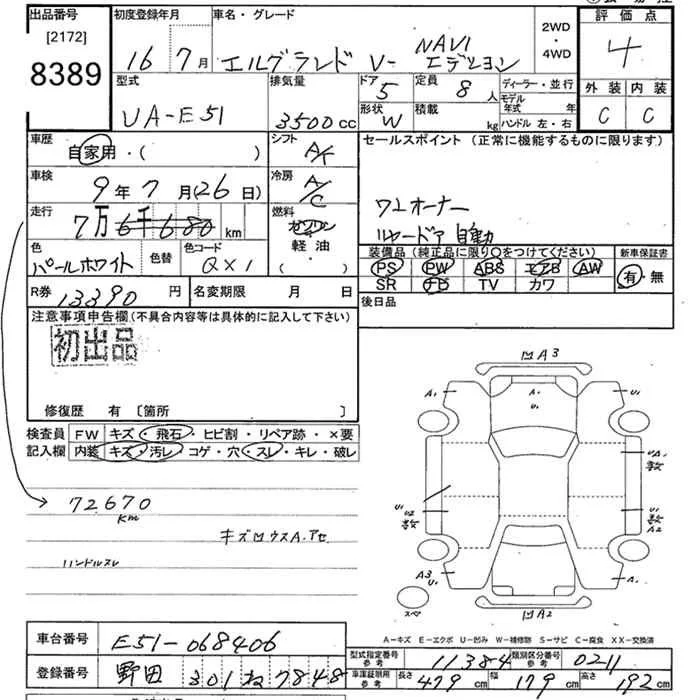 出品番号 初度登録年月 車名・グレード 2WD・4WD 評価点
[2172]
8389
16年 7月 エルグランド V- NAVIエディション 4
型式 排気量 ドア 定員 ディーラー・並行 外装 内装
UA-E51 3500cc 5 8人 モデル年式 年 C C
形状 積載 kg ハンドル 左・右
W
車歴 自家用・( ) シフト A/F セールスポイント (正常に機能するものに限ります)
車検 9年7月(26日) 冷房 A/C
ワンオーナー
走行 7万6千680km 燃料 ガソリン 軽油・( )
リヤードア 自動
色 パールホワイト 色替 色コード QX1
装備品(純正品に限り○をつけてください) 新車保証書
PS PW ABS エアB AW 有・無
SR ナビ TV カワ
R券 13390円 名変期限 月 日 後日品
注意事項申告欄(不具合内容等は具体的に記入して下さい)
初出品
修復歴 有 〔箇所 〕
検査員記入欄 FW キズ・飛石・ヒビ割・リペア跡・×要
内装 キズ・汚レ・コゲ・穴・スレ・キレ・破レ
72670km
キズMウスA.アセ
ハンドルスレ
MA3
A1 A1 U1
U1
U1 U2
A3 U1
A2
A1
スペア
MA2
A-キズ E-エクボ U-凹み W-補修跡 S-サビ C-腐食 XX-交換済
車台番号 E51-068406
型式指定番号 参考 11384 類別区分番号 参考 0211
登録番号 野田 301 ね 7848
車庫証明用 参考 長さ 479cm 幅 179cm 高さ 192cm